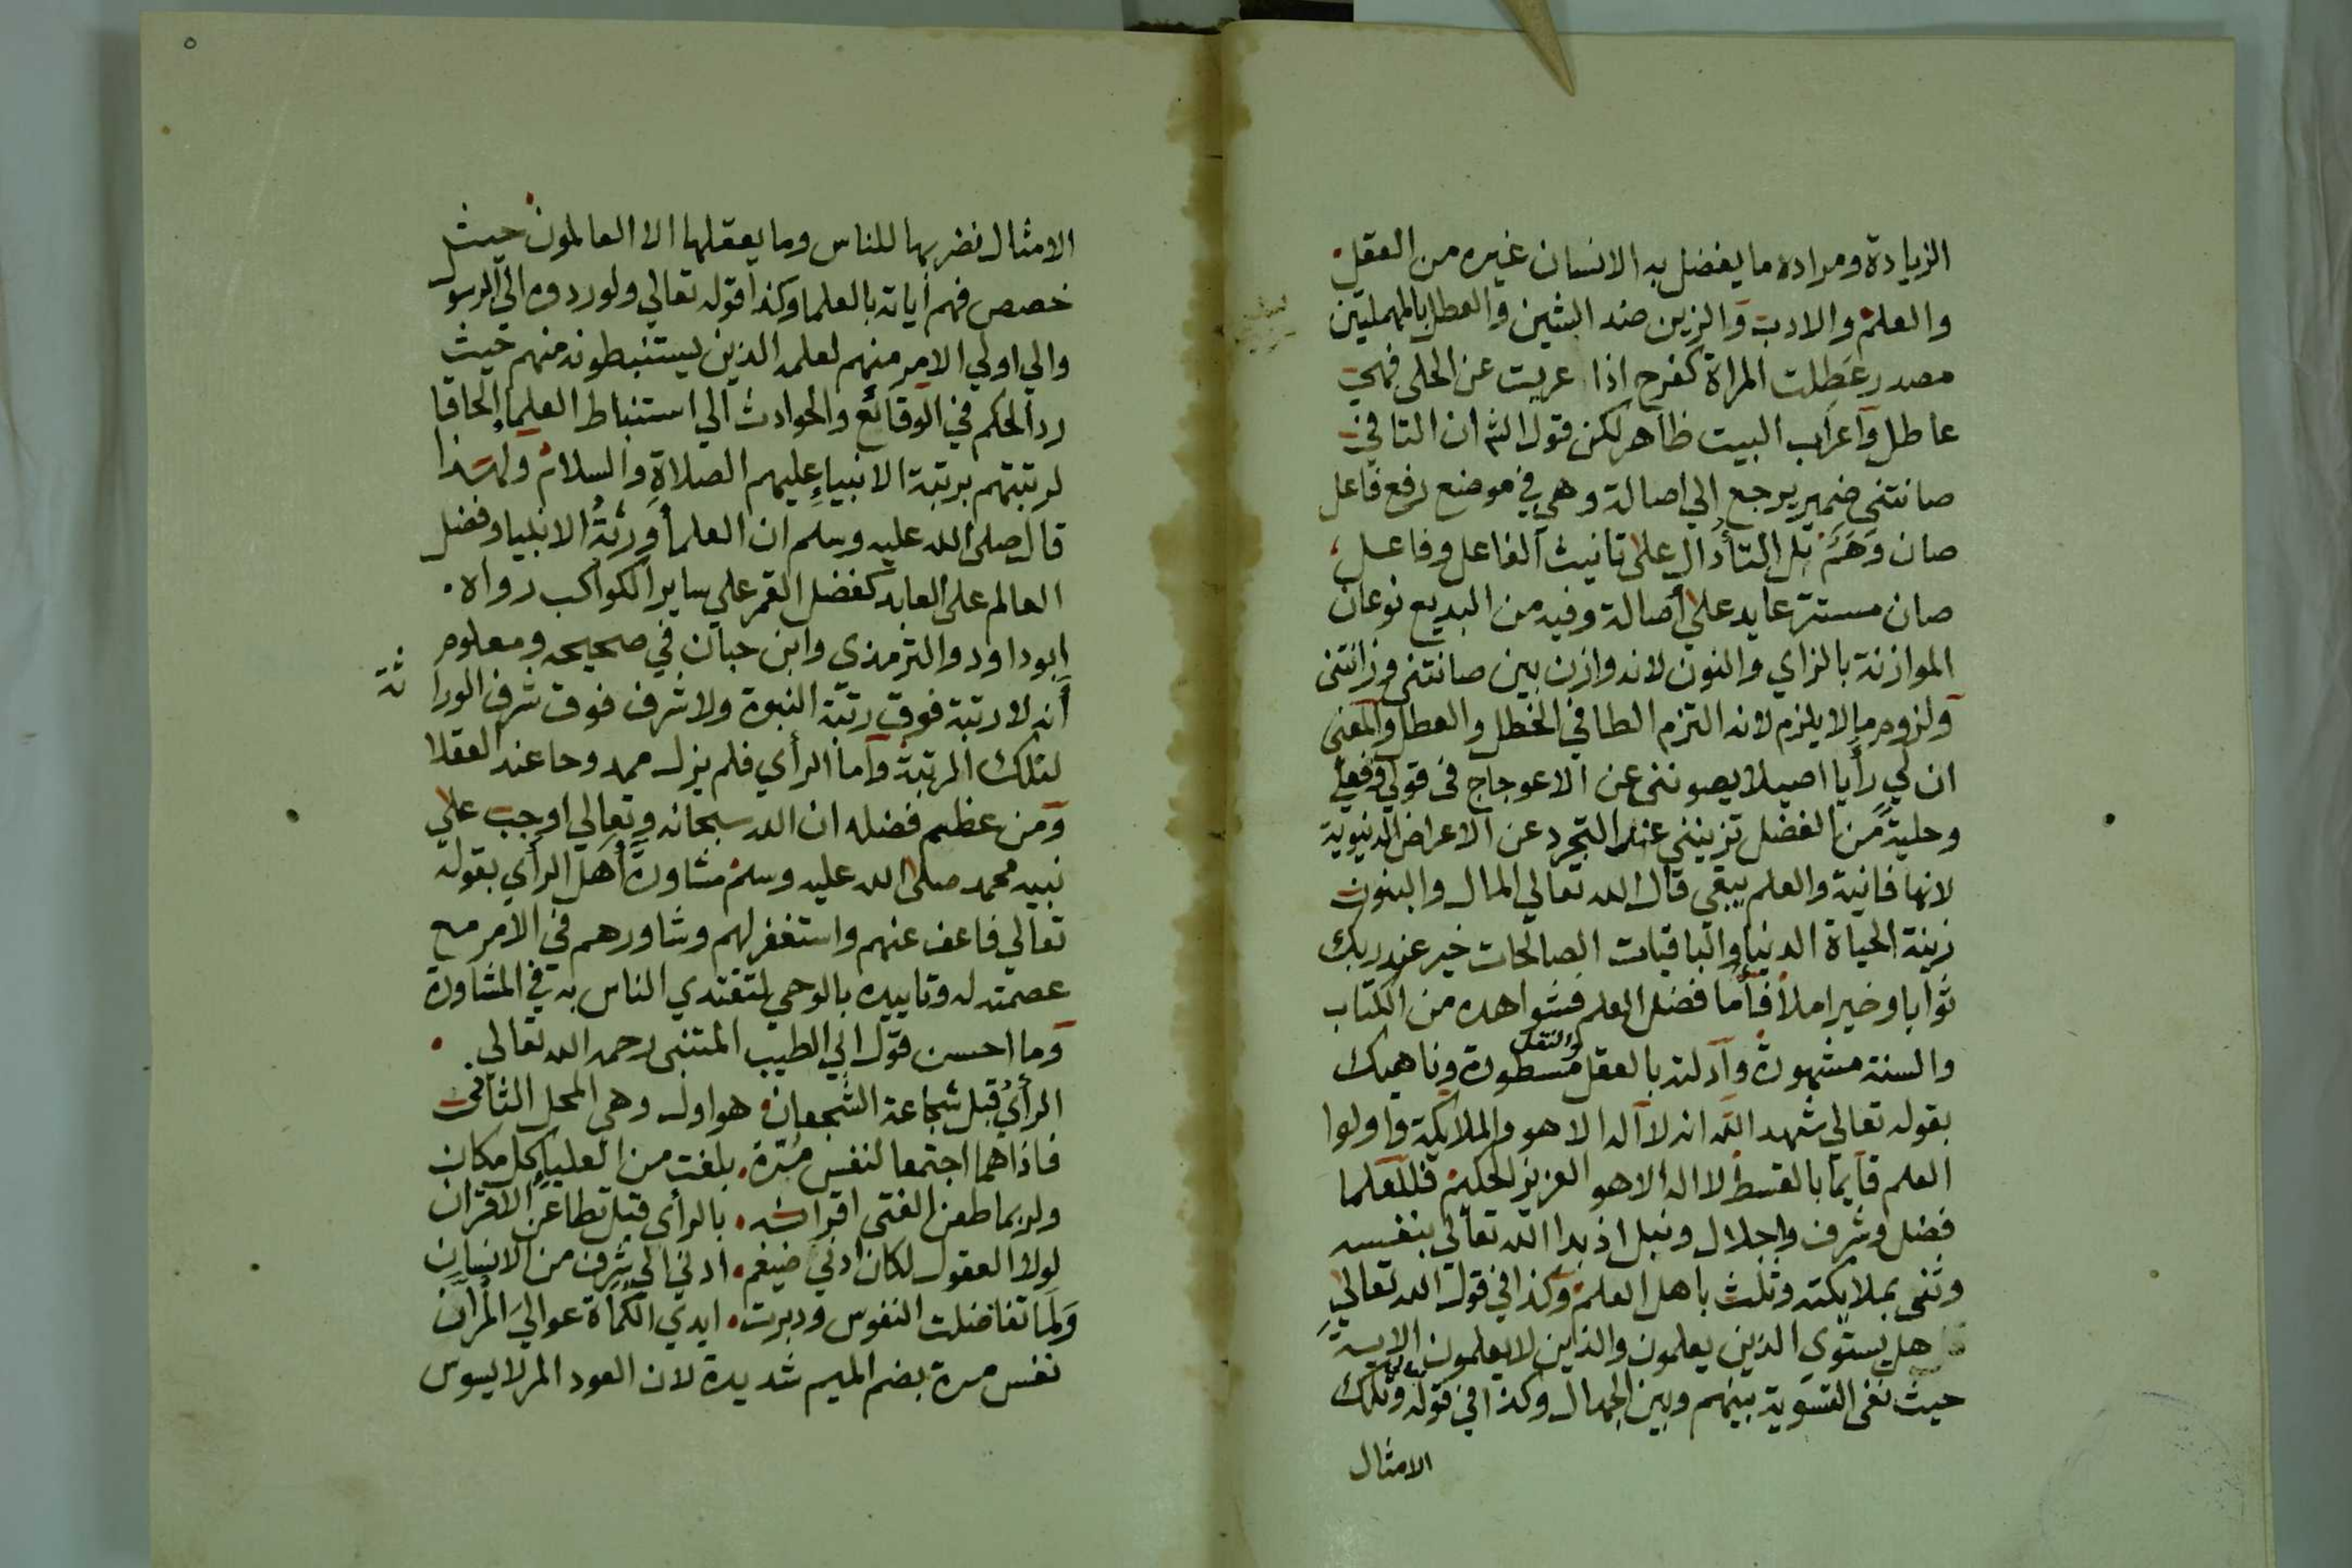 الزيادة ومراده ما يفضل به الانسان غيره من العقل
والعلم والادب والزين ضد الشين والعطل بالمهملتين
مصدر عَطِلت المراة كفرح اذا عريت عن الحلى فهي
عاطل واعراب البيت ظاهر لكن قول الش ان التا في
صانتني ضمير يرجع الي اصالة وهي في موضع رفع فاعل
صان وَهَمٌ بل التأ دال على تانيث الفاعل وفاعل
صان مستتر عايد علي أصالة وفيه من البديع نوعان
الموازنة بالزاي والنون لانه وازن بين صانتنى وزانتنى
ولزوم ما لا يلزم لانه التزم الطا في الخطل والعطل والمعنى
ان لي رأيا اصيلا يصوننى عن الاعوجاج فى قولي وفعلي
وحليةً من الفضل تزينني عند التجرد عن الاعراض الدنيوية
لانها فانية والعلم يبقي قال الله تعالي المال والبنون
زينة الحياة الدنيا والباقيات الصالحات خير عند ربك
ثوابا وخير املا فأما فضل العلم فشواهده من الكتاب
والسنة مشهودة وادلته بالعقل والنقل مسطورة وناهيك
بقوله تعالي شهد الله انه لا اله الا هو والملايكة واولوا
العلم قايما بالقسط لا اله الا هو العزيز الحكيم فللعلما
فضل وشرف واجلال ونبل اذ بدا الله تعالى بنفسه
وثنى بملايكته وثلث باهل العلم وكذا في قول الله تعالي
هل يستوي الذين يعلمون والذين لا يعلمون الاية
حيث نفى التسوية بينهم وبين الجهال وكذا في قوله وتلك
الامثال
الامثال نضربها للناس وما يعقلها الا العالمون حيث
خصص فهم اياته بالعلما وكذا قوله تعالي ولو ردوه الي الرسول
والي اولي الامر منهم لعلمه الذين يستنبطونه منهم حيث
رد الحكم في الوقائع والحوادث الي استنباط العلماء الحاقا
لرتبتهم برتبة الانبياء عليهم الصلاة والسلام ولهذا
قال صلى الله عليه وسلم ان العلمأ ورثةُ الانبيا وفضل
العالم على العابد كفضل القمر علي ساير الكواكب رواه
ابو داود والترمذي وابن حبان في صحيحه ومعلوم
أنه لا رتبة فوق رتبة النبوة ولا شرف فوق شرف الورا
ثة
لتلك المرتبة واما الرأي فلم يزل ممدوحا عند العقلا
ومن عظيم فضله ان الله سبحانه وتعالي اوجب علي
نبيه محمد صلى الله عليه وسلم مشاورة أهل الرأي بقوله
تعالي فاعف عنهم واستغفر لهم وشاورهم في الامر مع
عصمته له وتاييده بالوحي لتقتدي الناس به في المشاورة
وما احسن قول ابي الطيب المتنبى رحمه الله تعالي
الرأيُ قبل شجاعة الشجعان هو اول وهي المحل الثاني
فاذا هما اجتمعا لنفس مُرّة بلغت من العلياء كل مكان
ولربما طعن الفتى اقرانه بالرأي قبل تطاعن الاقران
لولا العقول لكان ادني ضيغم ادني الي شرف من الانسان
وَلَما تفاضلت النفوس ودبرت ايدي الكماة عواليَ المرّان
نفس مرة بضم الميم شديدة لان العود المر لا يسوس